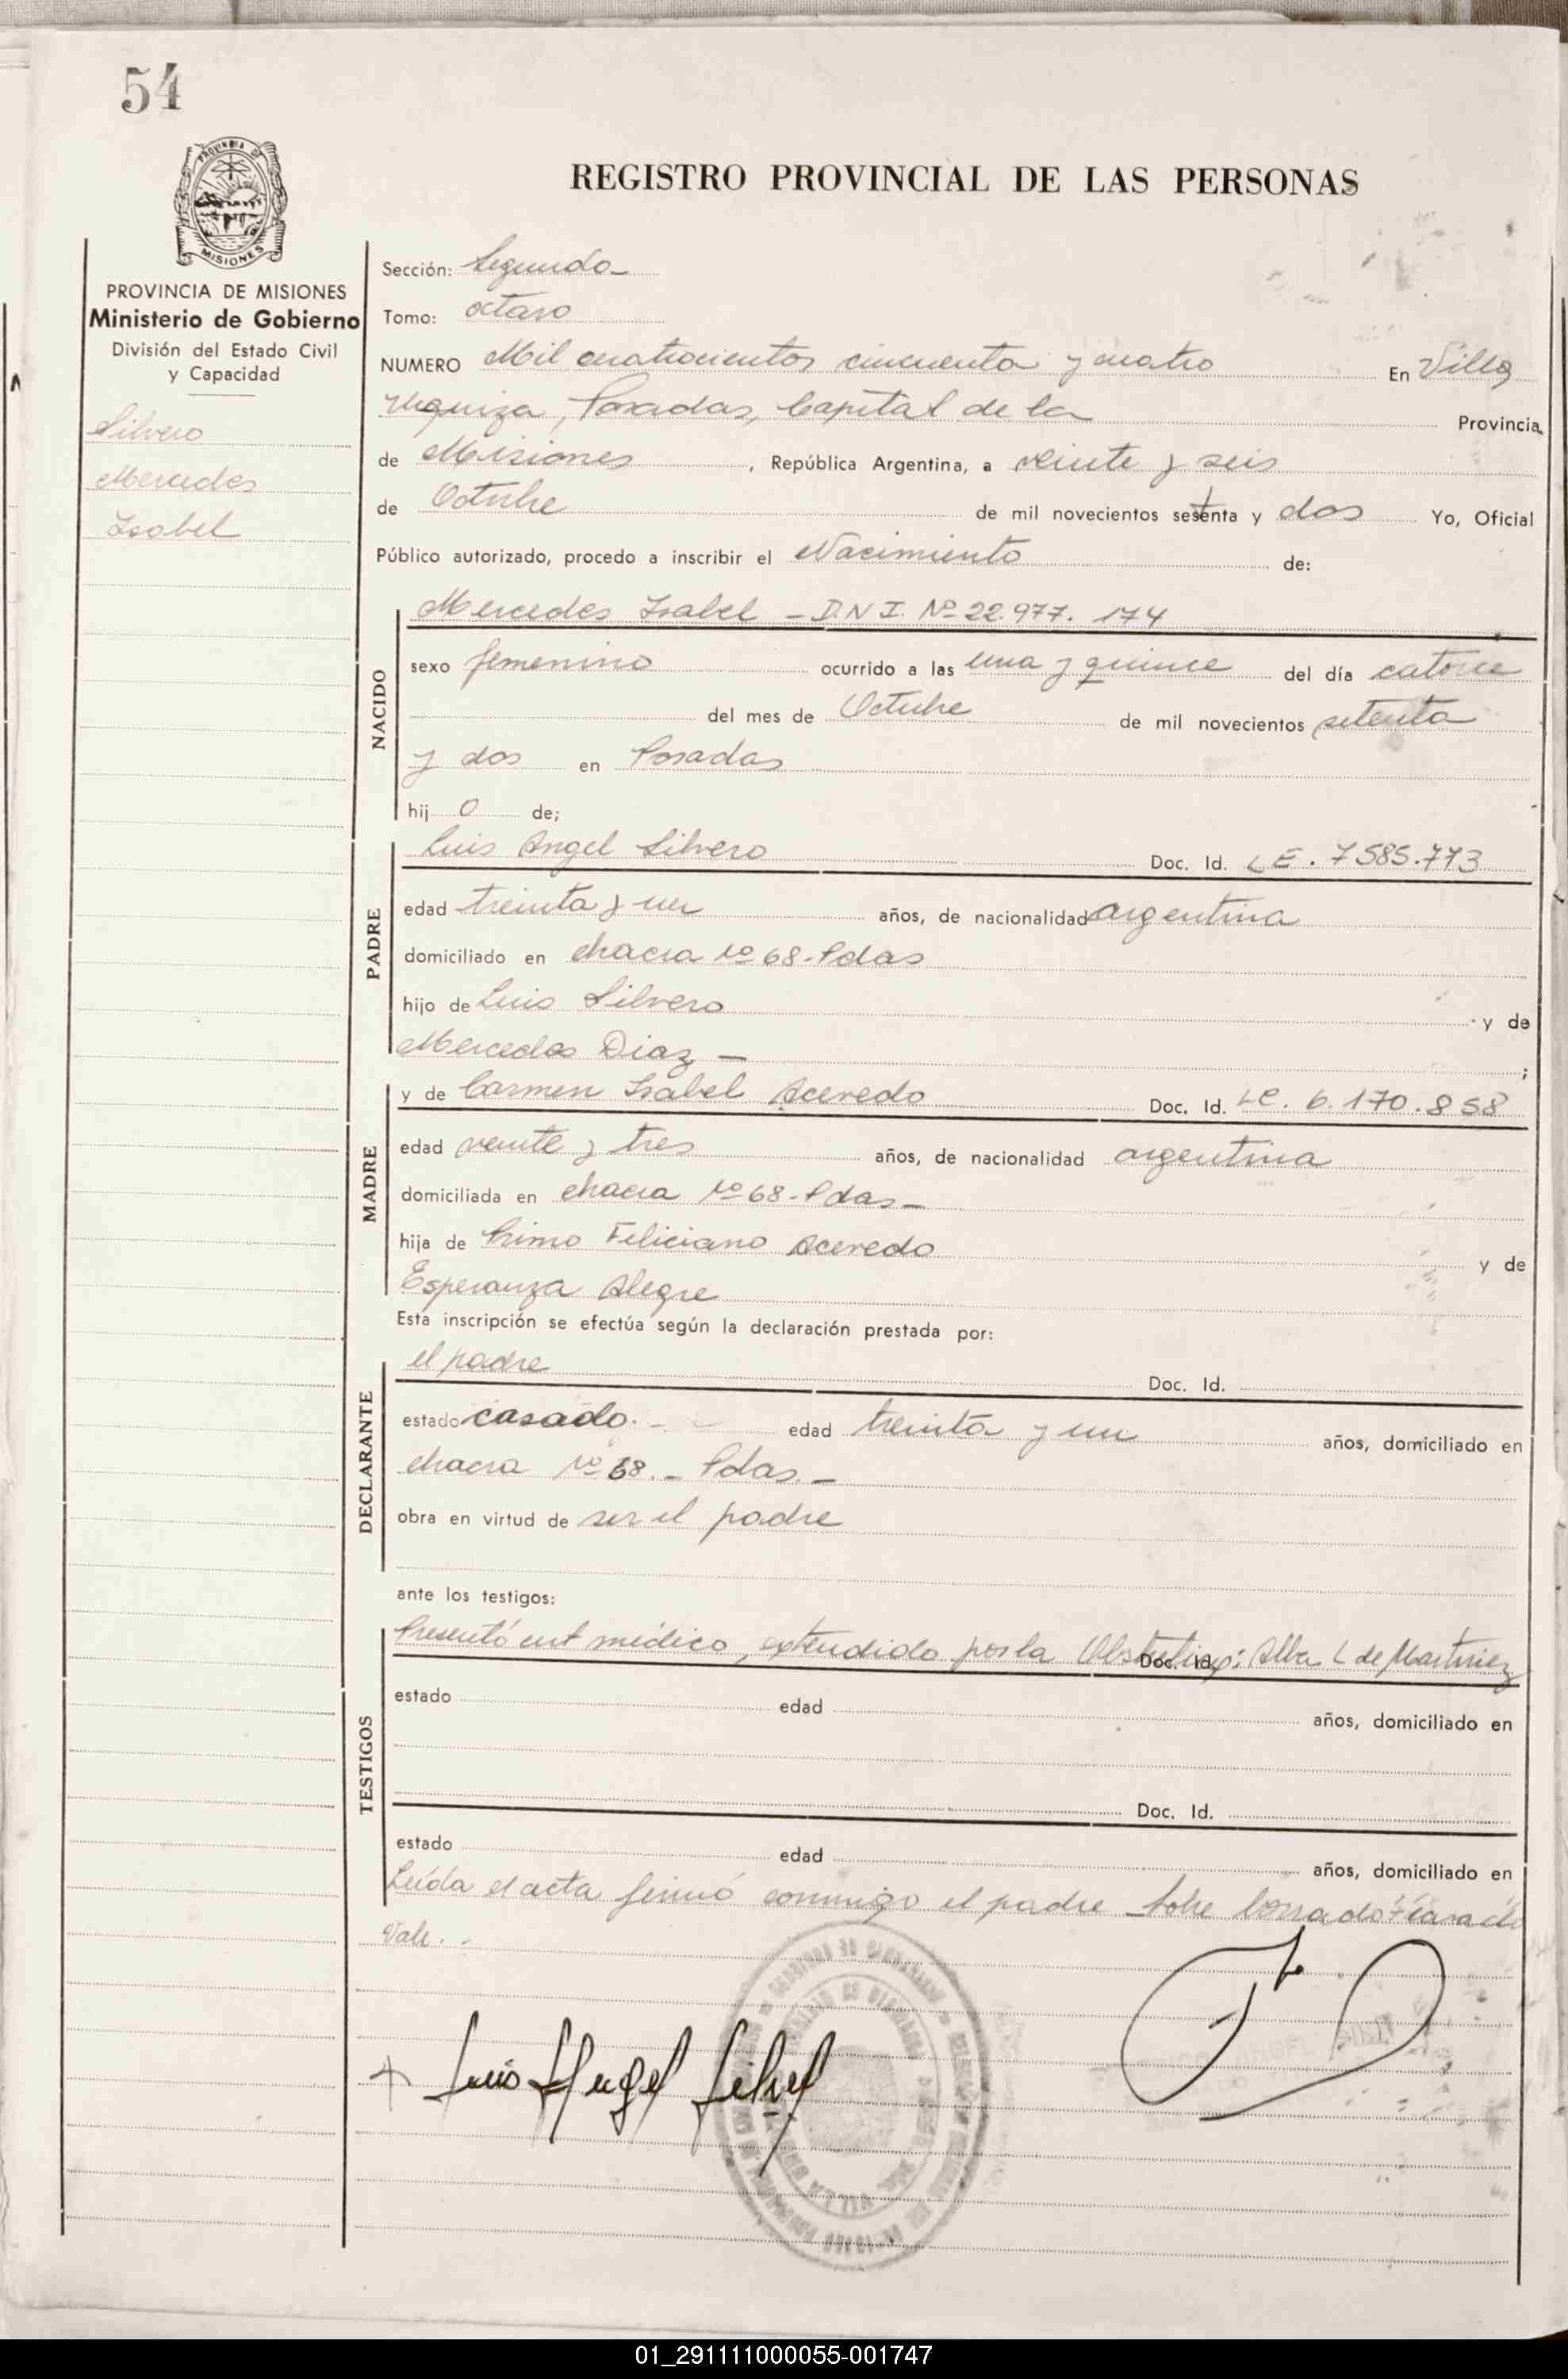 54
REGISTRO PROVINCIAL DE LAS PERSONAS
MISIONES
PROVINCIA DE MISIONES
Ministerio de Gobierno
División del Estado Civil
y Capacidad
Silvero
Mercedes
Isabel
Sección: Segunda
Tomo: octavo
NUMERO Mil cuatrocientos cincuenta y cuatro En Villa
Urquiza, Posadas, Capital de la Provincia
de Misiones, República Argentina, a veinte y seis
de Octubre de mil novecientos setenta y dos Yo, Oficial
Público autorizado, procedo a inscribir el Nacimiento de:
Mercedes Isabel - D.N.I. Nº 22.977.174
NACIDO
sexo femenino ocurrido a las una y quince del día catorce
del mes de Octubre de mil novecientos setenta
y dos en Posadas
hij o de;
Luis Angel Silvero Doc. Id. L E. 7585.773
PADRE
edad treinta y un años, de nacionalidad argentina
domiciliado en chacra Nº 68-Pdas
hijo de Luis Silvero y de
Mercedes Diaz - ;
y de Carmen Isabel Acevedo Doc. Id. LC. 6.170.858
MADRE
edad veinte y tres años, de nacionalidad argentina
domiciliada en chacra Nº 68-Pdas-
hija de Primo Feliciano Acevedo y de
Esperanza Alegre
Esta inscripción se efectúa según la declaración prestada por:
el padre Doc. Id.
DECLARANTE
estado casado.- edad treinta y un años, domiciliado en
chacra Nº 68.- Pdas.-
obra en virtud de ser el padre
ante los testigos:
Presentó cert médico, extendido por la Obstetrica: Alba L de Martinez Doc. Id.
TESTIGOS
estado edad años, domiciliado en
Doc. Id.
estado edad años, domiciliado en
Leída el acta firmó conmigo el padre Sobre borrado: casado
Vale.-
Luis Angel Silvero
01_291111000055-001747